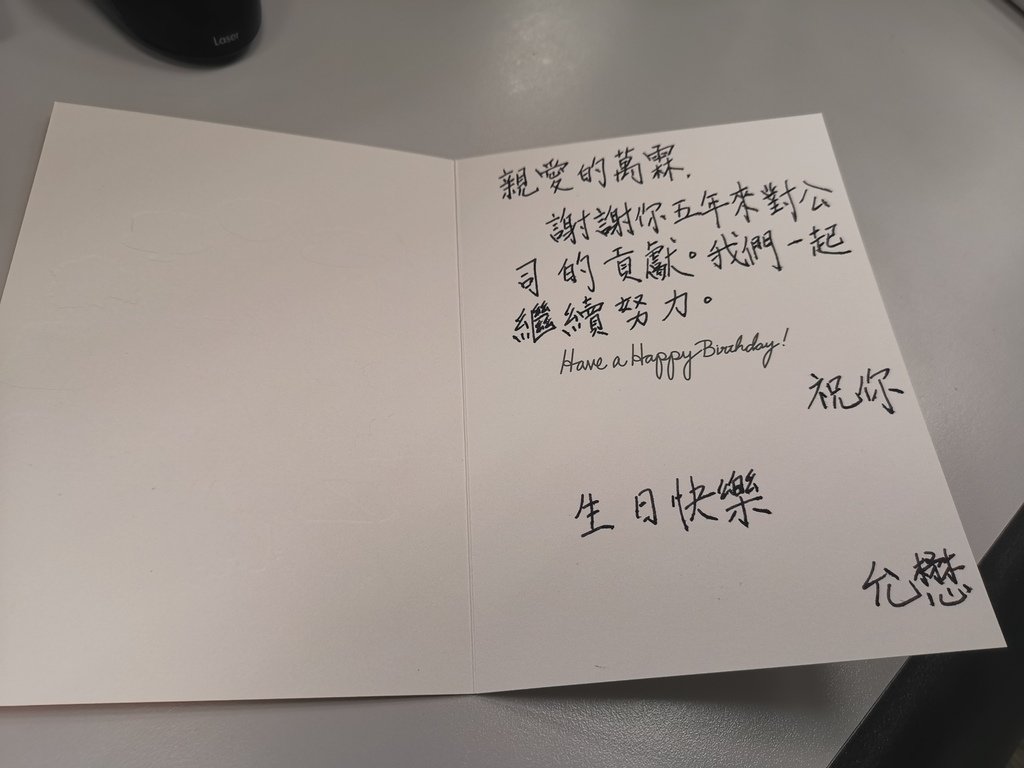 Laser
親愛的萬霖,
謝謝你五年來對公
司的貢獻。我們一起
繼續努力。
Have a Happy Birthday!
祝你
生日快樂
允懋